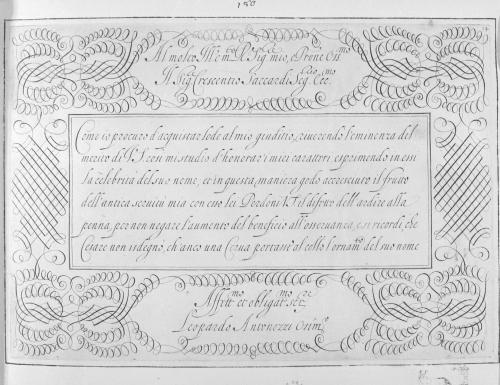 150
Al molto Ill.re et m.to R. Sig.r mio, Prone Oss.mo
Il Sig.r Crescentio Saccardi Seg.
Come io procuro d'acquistar lode al mio giuditio, riuerendo l'eminenza del
merito di V.S. così mi studio d'honorar i miei caratteri esprimendo in essi
la celebrità del suo nome, et in questa maniera godo accresciuto il frutto
dell'antica seruitù mia con esso lei Perdoni V.S. il difetto dell'ardire alla
penna, per non negare l'aumento del beneficio all'osseruanza, e si ricordi, che
Cesare non isdegnò, ch'anco una Cerua portasse al collo l'ornam.to del suo nome
Aff.mo et obligat.mo ser.re
Leopardo Antonozzi Osim.o